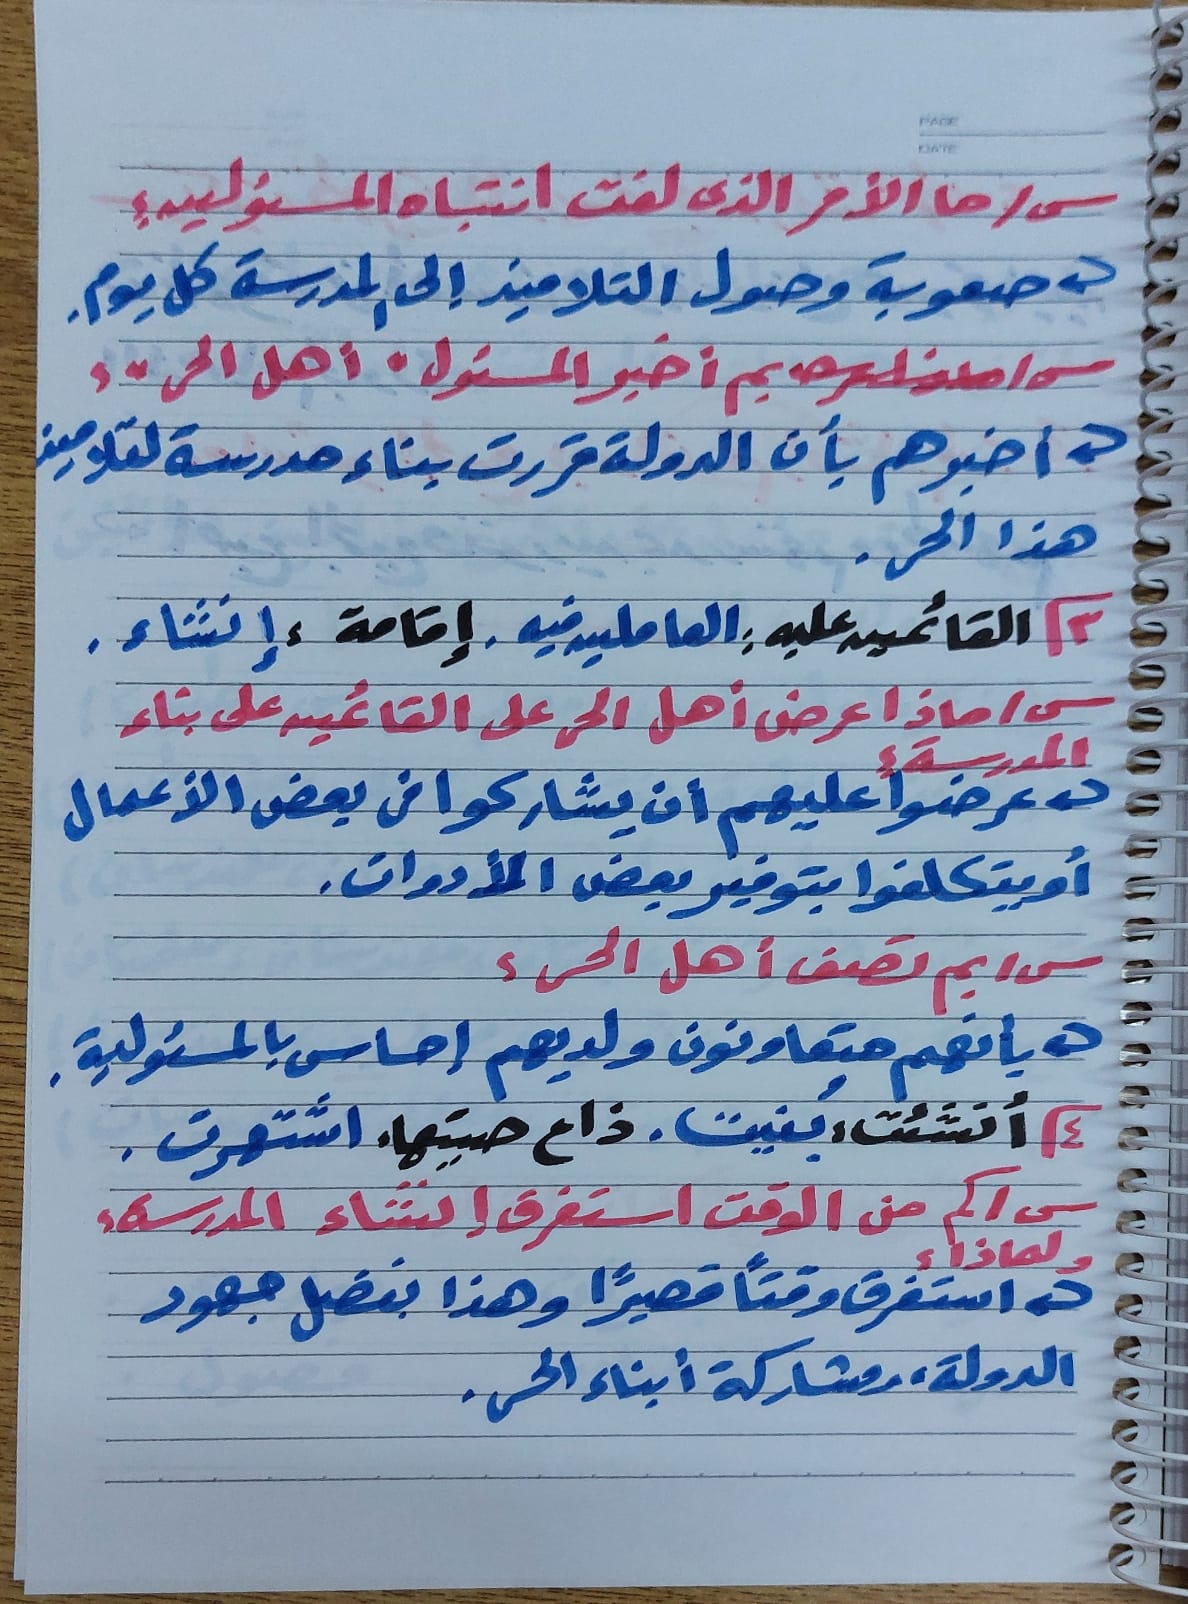 PAGE
DATE
س/ ما الأمر الذى لفت انتباه المسئولين؟
ج صعوبة وصول التلاميذ إلى المدرسة كل يوم.
س/ بم أخبر المسئول " أهل الحى "؟
ج أخبرهم بأن الدولة قررت بناء مدرسة لتلاميذ
هذا الحى.
٣ القائمين عليه: العاملين فيه. إقامة: إنشاء.
س/ ماذا عرض أهل الحى على القائمين على بناء
المدرسة؟
ج عرضوا عليهم أن يشاركوا فى بعض الأعمال
أو يتكلفوا بتوفير بعض الأدوات.
س/ بم تصف أهل الحى؟
ج بأنهم متعاونون ولديهم إحساس بالمسئولية.
٤ أُنشئت: بُنيت. ذاع صيتها: اشتهرت.
س/ كم من الوقت استغرق إنشاء المدرسة؟
ولماذا؟
ج استغرق وقتًا قصيرًا وهذا بفضل جهود
الدولة، ومشاركة أبناء الحى.